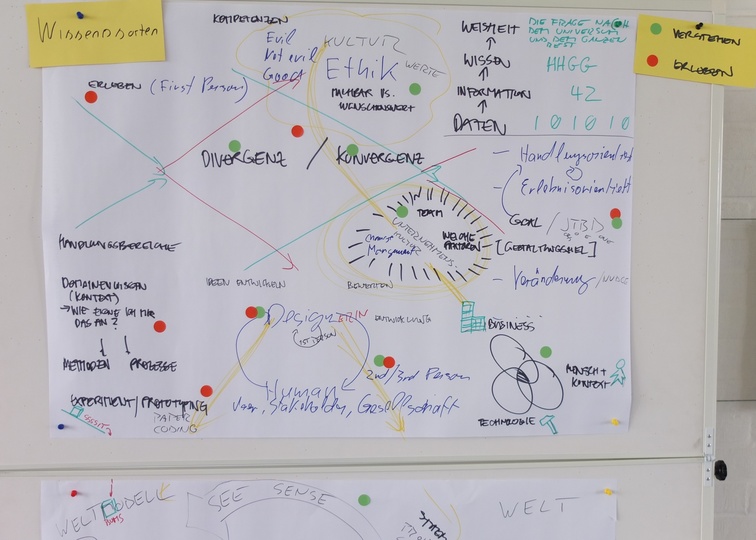 Wissensarten
KOMPETENZEN
Evil
Not evil
Good
KULTUR
Ethik
WERTE
MACHBAR VS.
WÜNSCHENSWERT
WEISHEIT
DIE FRAGE NACH
DEM UNIVERSUM
UND DEM GANZEN
REST
WISSEN
HHGG
INFORMATION
42
DATEN
101010
VERSTEHEN
ERLEBEN
ERLEBEN (First Person)
DIVERGENZ / KONVERGENZ
– Handlungsorientiert
– Erlebnisorientiert
GOAL / JTBD
[GESTALTUNGSZIEL]
– Veränderung /
TEAM
UNTERNEHMENS
KULTUR
WELCHE
Change
Management
HANDLUNGSBEREICHE
IDEEN ENTWICKELN
BEWERTEN
DOMAINENWISSEN
(KONTEXT)
→ WIE EIGNE ICH MIR
DAS AN?
METHODEN
PROZESSE
EXPERIMENT/PROTOTYPING
PAPER
CODING
DesignERIN
1ST PERSON
ENTWICKLUNG
2nd/3rd Person
Human
User, Stakeholder, Gesellschaft
BUSINESS
MENSCH +
KONTEXT
TECHNOLOGIE
WELTMODELL
SEE
SENSE
WELT